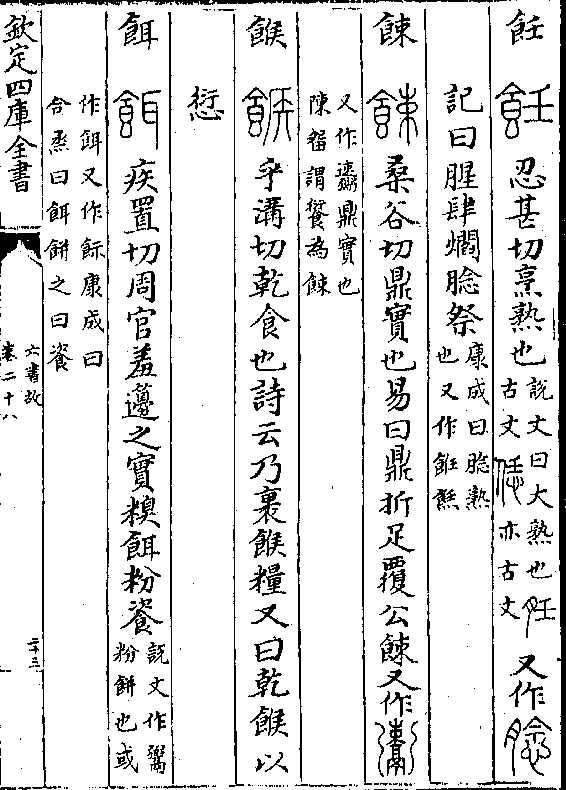 飪 飪 忍甚切烹熟也 說文曰大熟也 古文 亦古文 又作
記曰腥肆爓腍祭 康成曰腍熟也又作飪
餗 餗 桑谷切鼎實也易曰鼎折足覆公餗又作
又作鼎實也陳留謂䭈為餗
餱 餱 乎溝切乾食也詩云乃裹餱糧又曰乾餱以
愆
餌 餌 疾置切周官羞籩之實糗餌粉餈 說文作粉餅也或
作餌又作康成曰合烝曰餌餅之曰餈
欽定四庫全書
六書故
卷二十八
二十三